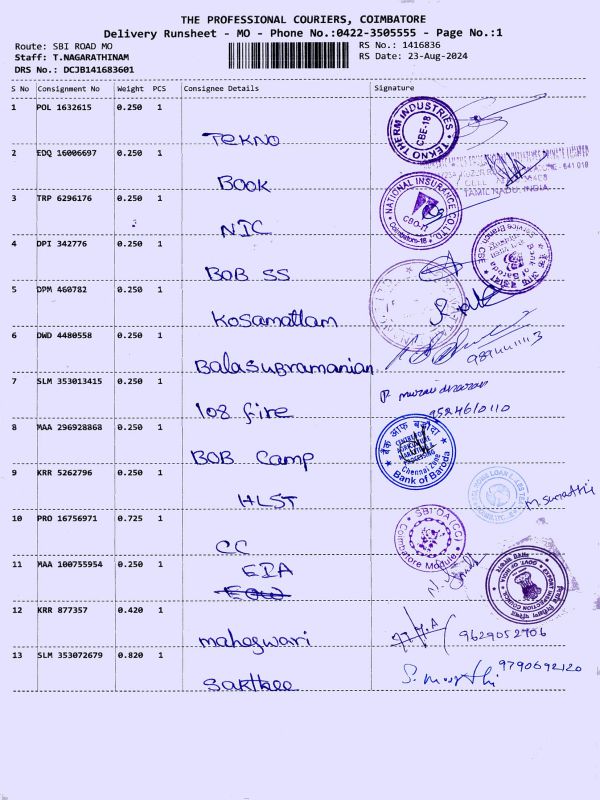 THE PROFESSIONAL COURIERS, COIMBATORE
Delivery Runsheet - MO - Phone No.:0422-3505555 - Page No.:1
Route: SBI ROAD MO
RS No.: 1416836
Staff: T.NAGARATHINAM
RS Date: 23-Aug-2024
DRS No.: DCJB141683601
S No Consignment No Weight PCS Consignee Details Signature
1 POL 1632615 0.250 1
TEKNO
TEKNO THERM INDUSTRIES CBE-18
2 EDQ 16006697 0.250 1
BOOK
TAMIC NADU, INDIA
3 TRP 6296176 0.250 1
NIC
NATIONAL INSURANCE CO.LTD.
Coimbatore-18
4 DPI 342776 0.250 1
BOB SS
Service Branch CBE
Bank of Baroda
5 DPM 460782 0.250 1
Kosamattam
6 DWD 4480558 0.250 1
Balasubramanian
7 SLM 353013415 0.250 1
108 fire
9524610110
8 MAA 296928868 0.250 1
BOB Camp
बैंक ऑफ़ बड़ौदा
Chennai Zone
Bank of Baroda
9 KRR 5262796 0.250 1
HLST
M. Sumathi
10 PRO 16756971 0.725 1
CC
SBI OA (CC)
Coimbatore Module
11 MAA 100755954 0.250 1
EIA
12 KRR 877357 0.420 1
maheswari
9629052706
13 SLM 353072679 0.820 1
Sakthee
S. Moorthi 9790692120